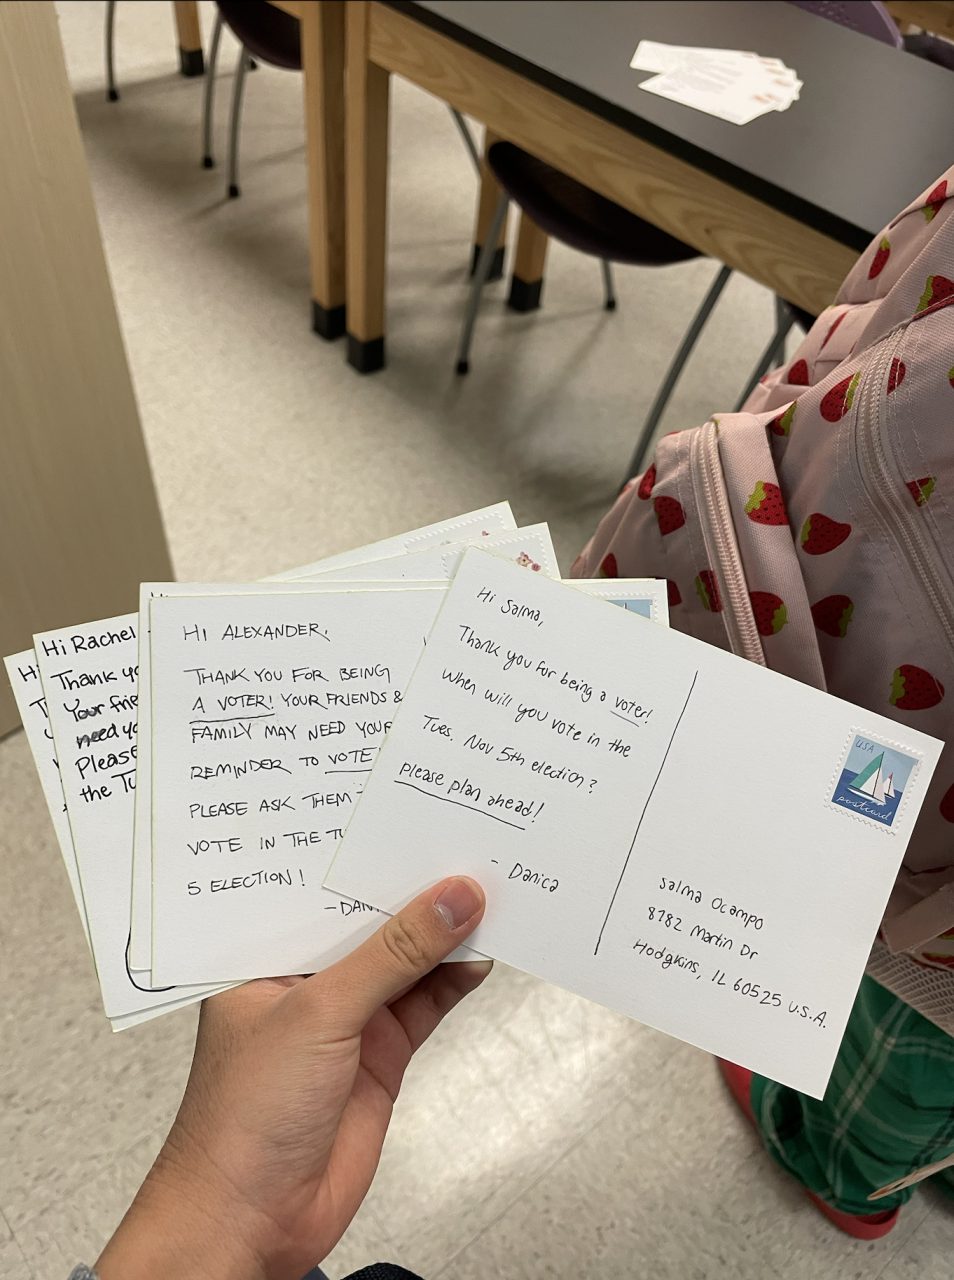 Hi
Hi Rachel
Thank yo
Your frie
need yo
Please
the Tu
HI ALEXANDER,
THANK YOU FOR BEING
A VOTER! YOUR FRIENDS &
FAMILY MAY NEED YOUR
REMINDER TO VOTE
PLEASE ASK THEM T
VOTE IN THE TU
5 ELECTION!
-DANI
Hi Salma,
Thank you for being a voter!
When will you vote in the
Tues. Nov 5th election?
please plan ahead!
- Danica
USA
postcard
Salma Ocampo
8782 Martin Dr
Hodgkins, IL 60525 U.S.A.